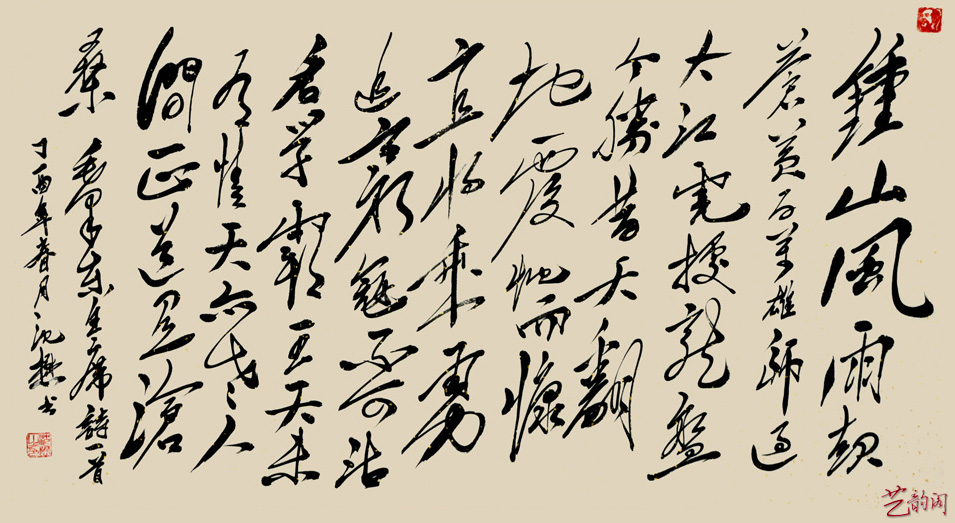 鍾山風雨起
蒼黄百萬雄師過
大江虎據龍盤
今勝昔天翻
地覆慨而慷
宜将剩勇
追窮寇不可沽
名學霸王天若
有情天亦老人
間正道是滄
桑
毛澤東主席詩一首
丁酉年春月沈书
艺韵阁